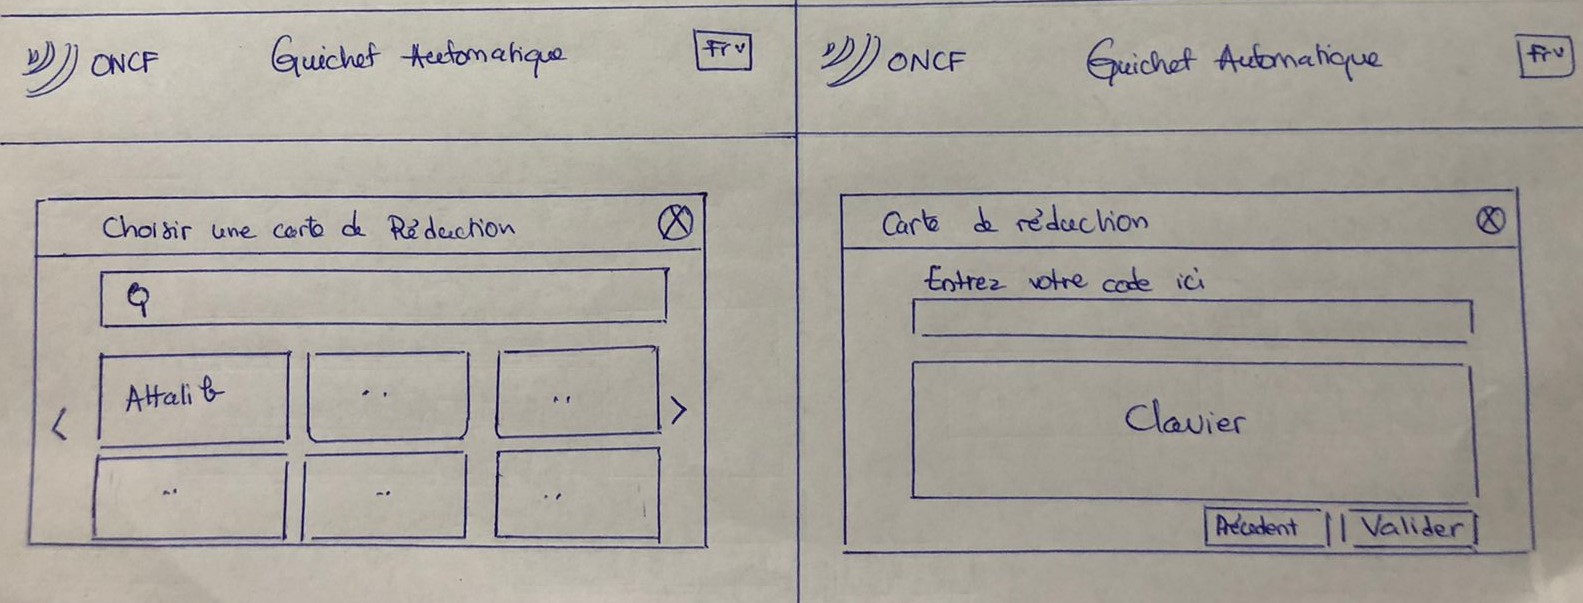 ONCF Guichet Automatique Fr v
Choisir une carte de Réduction
Attalib
..
..
..
..
..
ONCF Guichet Automatique Fr v
Carte de réduction
Entrez votre code ici
Clavier
Précedent Valider